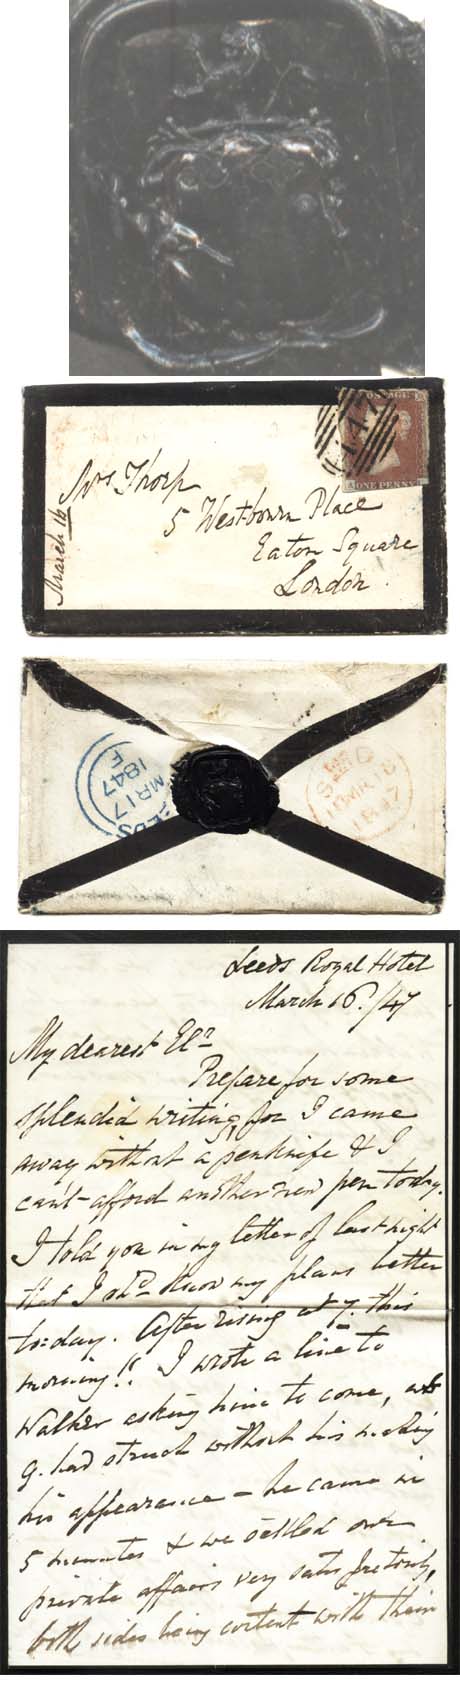 POSTAGE
147
A
ONE PENNY
Mrs Thorp
5 Westbourn Place
Eaton Square
London
March 16
LEEDS
MR 17
1847
F
MR 18
1847
Leeds Royal Hotel
March 16./47
My dearest Elr
Prepare for some
splendid writing, for I came
away without a penknife & I
can't afford another new pen today.
I told you in my letter of last night
that I shd know my plans better
to:day. After rising at 7. this
morning!! I wrote a line to
Walker asking him to come, wh
9. had struck without his making
his appearance - he came in
5 minutes & we settled our
private affairs very satisfactorily,
both sides being content with their